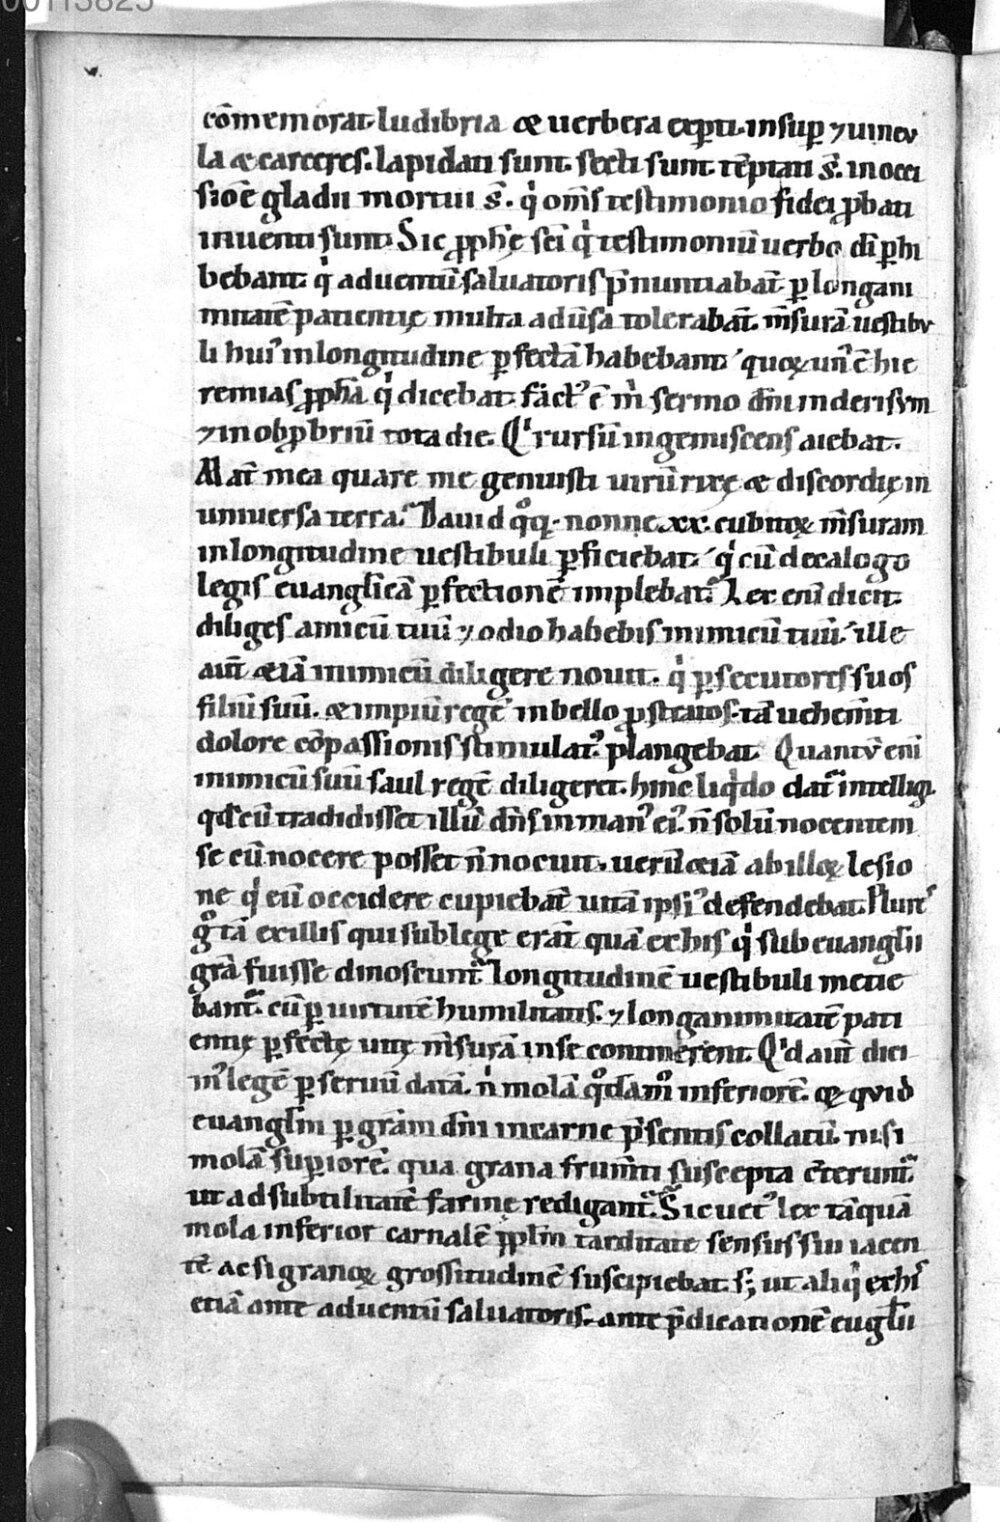 00113825
cōmemorat. ludibria & uerbera exꝑti. insuꝑ ⁊ uincu
la & carceres. lapidati sunt. secti sunt. tēptati s̄. in occi
siōe gladii mortui s̄. q̇ om̄s testimonio fidei ꝓbati
inuenti sunt. Sic ꝓph̄ę sc̄i q̇ testimoniū uerbo dī ꝑhi
bebant. q̇ aduentū saluatoris p̄nuntiabāt. ꝑ longani
mitatē patientię multa adūsa tolerabāt. m̄surā uestibu
li huiꝰ in longitudine ꝑfectā habebant. quoꝝ unꝰ ē hie
remias ꝓph̄a q̇ dicebat. fāctꝰ ē ṁ sermo dn̄i in derisum
⁊ in obꝓbriū tota die. Qⁱ rursū ingemiscens aiebat.
Mat̄ mea quare me genuisti uirū rixę & discordię in
uniuersa terra. Dauid qͦq;. nonne .xx. cubitoꝝ m̄suram
in longitudine uestibuli ꝑficiebat. q̇ cū decalogo
legis euanglīcā ꝑfectionē implebat. Lex enī dicit.
diliges amicū tuū ⁊ odio habebis inimicū tuū. ille
aut̄ &iā inimicū diligere nouit. q̇ ꝑsecutores suos
filiū suū. & impiū regē in bello ꝓstratos. tā uehem̄ti
dolore cōpassionis stimulatꝰ plangebat. Quantū enī
inimicū suū saul regē diligeret. hinc liqⁱdo dat̄ intellig.
qd̄ cū tradidisset illū dn̄s in manꝰ eiꝰ. n̄ solū nocentem
se cū nocere posset n̄ nocuit. uerū &iā ab illoꝝ lesio
ne q̇ eū occidere cupiebāt uitā ipsiꝰ defendebat. Plureſ
gͦ tā ex illis qui sub lege erāt quā ex his q̇ sub euanglii
grā fuisse dinoscunt̄. longitudinē uestibuli metie
bant̄. cū ꝑ uirtutē humilitatis. ⁊ longanimitatē pati
entię ꝑfectę uitę m̄surā in se continerent. Qⁱd aut̄ dici
mꝰ legē ꝑ seruū datā. ṅ molā qͦdāmͦ inferiorē. & quid
euangliīm ꝑ grām dn̄i in carne p̄sentis collatū. nisi
molā suꝑiorē. qua grana frum̄ti suscepta c̄terunt̄.
ut ad subtilitatē farinę redigant̄. Sic uetꝰ lex tāquā
mola inferior carnalē ppl̄m tarditate sensus sui iacen
tē ac si granoꝝ grossitudinē suscipiebat. s; ut aliq̇ ex hiſ
etiā ante aduentū saluatoris. ante p̄dicationē euglīi